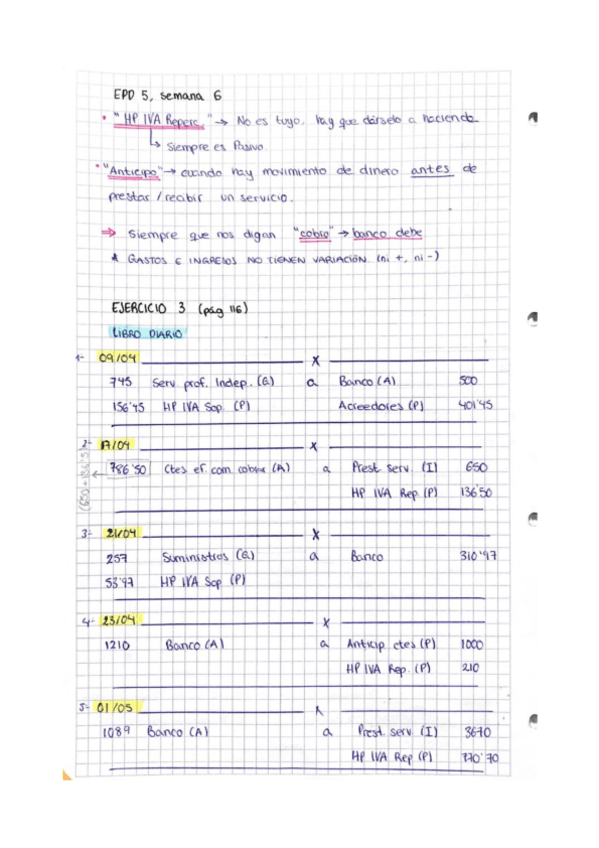 EPD 5, semana 6
• "HP IVA Reperc." → No es tuyo, hay que dárselo a hacienda
↳ Siempre es Pasivo.
• "Anticipo" → cuando hay movimiento de dinero antes de
prestar / recibir un servicio.
⇒ Siempre que nos digan "cobro" → banco debe
* GASTOS E INGRESOS NO TIENEN VARIACIÓN (ni +, ni -)
EJERCICIO 3 (pág 116)
LIBRO DIARIO
1- 09/04 x
745 Serv prof. Indep. (G) a Banco (A) 500
156'45 HP IVA Sop. (P) Acreedores (P) 401'45
2- 17/04 x
786'50 Ctes ef. com cobrar (A) a Prest. serv. (I) 650
HP IVA Rep. (P) 136'50
(650 + 136'5)
3- 21/04 x
257 Suministros (G) a Banco 310'97
53'97 HP IVA Sop (P)
4- 23/04 x
1210 Banco (A) a Anticip ctes (P) 1000
HP IVA Rep. (P) 210
5- 01/05 x
1089 Banco (A) a Prest. serv. (I) 3670
HP IVA Rep (P) 770'70